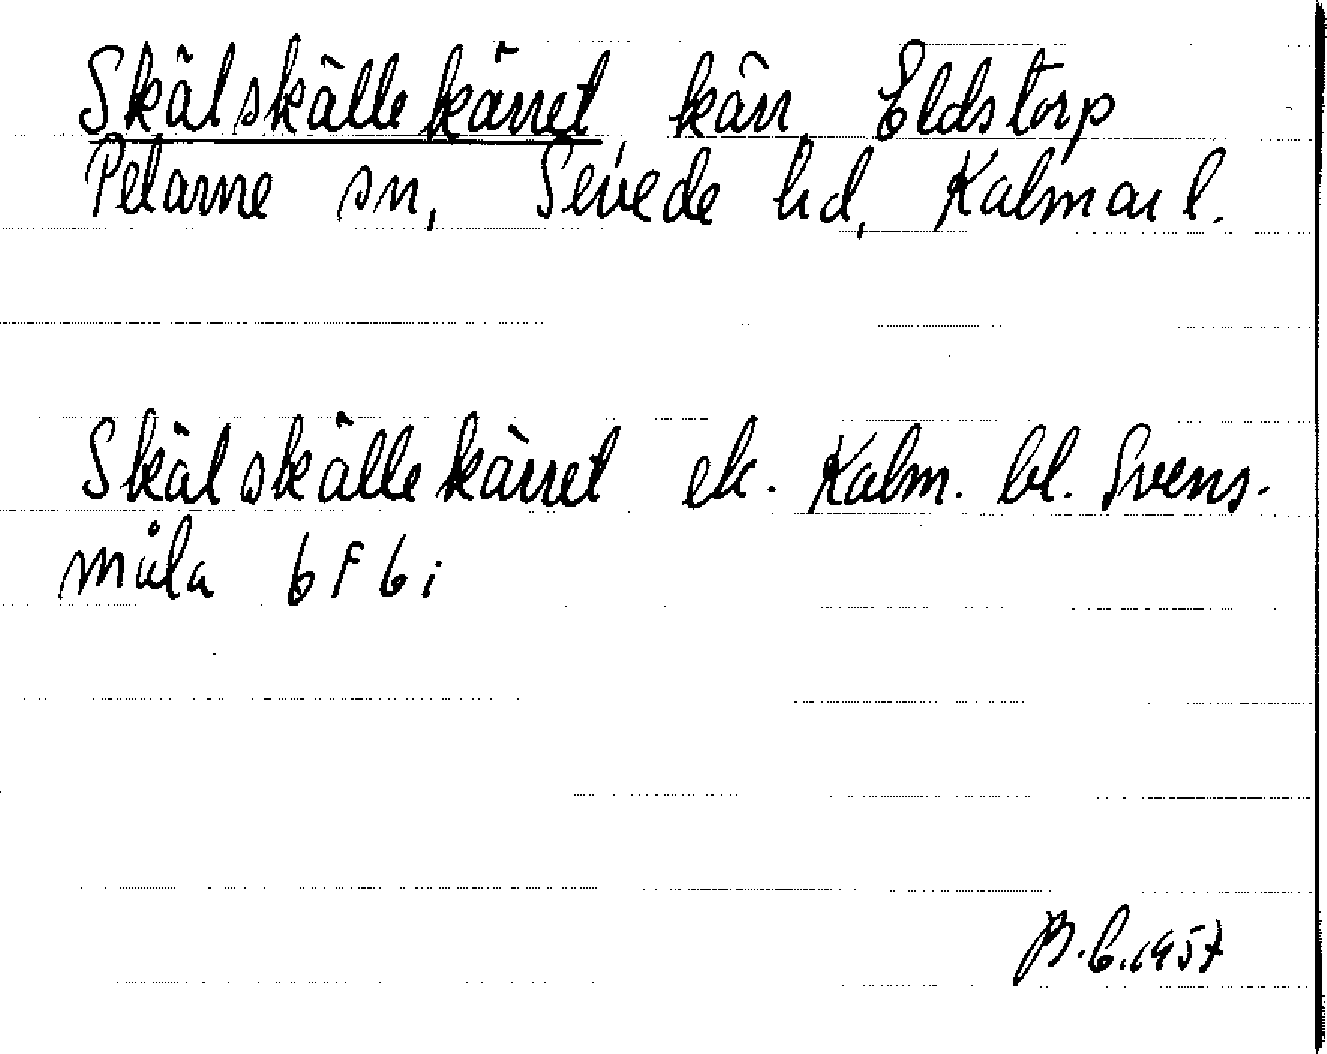 Skälskällekärret, kärr, Eldstorp
Pelarne sn, Sevede hd, Kalmar l.
Skälskällekärret ek. Kalm. bl. Svens-
måla 6 F 6 i
B.C. 1957